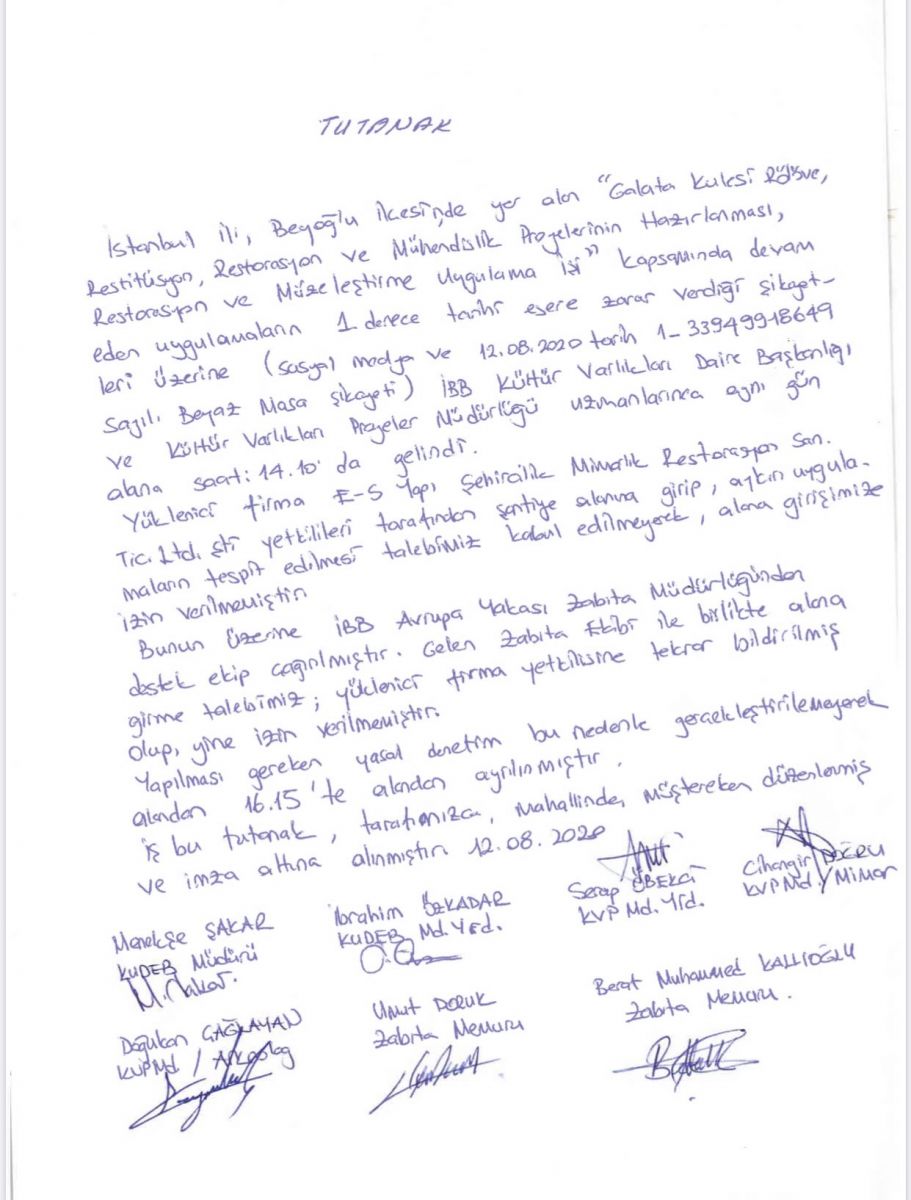 TUTANAK
İstanbul İli, Beyoğlu ilçesinde yer alan "Galata Kulesi Rölöve,
Restitüsyon, Restorasyon ve Mühendislik Projelerinin Hazırlanması,
Restorasyon ve Müzeleştirme Uygulama İşi" kapsamında devam
eden uygulamaların 1. derece tarihi esere zarar verdiği şikayet-
leri üzerine (sosyal medya ve 12.08.2020 tarih 1-33949918649
sayılı Beyaz Masa şikayeti) İBB Kültür Varlıkları Daire Başkanlığı
ve Kültür Varlıkları Projeler Müdürlüğü uzmanlarınca aynı gün
alana saat: 14.10' da gelindi.
Yüklenici firma E-S Yapı Şehircilik Mimarlık Restorasyon San.
Tic. Ltd. Şti yetkilileri tarafından şantiye alanına girip, aykırı uygula-
maların tespit edilmesi talebimiz kabul edilmeyerek, alana girişimize
izin verilmemiştir.
Bunun üzerine İBB Avrupa Yakası Zabıta Müdürlüğünden
destek ekip çağırılmıştır. Gelen Zabıta Ekibi ile birlikte alana
girme talebimiz; yüklenici firma yetkilisine tekrar bildirilmiş
olup, yine izin verilmemiştir.
Yapılması gereken yasal denetim bu nedenle gerçekleştirilemeyerek
alandan 16.15 'te alandan ayrılınmıştır.
İş bu tutanak, tarafımızca, mahallinde, müştereken düzenlenmiş
ve imza altına alınmıştır. 12.08.2020
Menekşe ŞAKAR
KUDEB Müdürü
M. Şakar.
İbrahim ÖZKADAR
KUDEB Md. Yrd.
Serap ÖBEKCİ
KVP Md. Yrd.
Cihangir DOĞRU
KVPMd. / Mimar
Doğukan ÇAĞLAYAN
KVPMd. / Arkeolog
Umut DORUK
Zabıta Memuru
Berat Muhammed KALLIOĞLU
Zabıta Memuru.